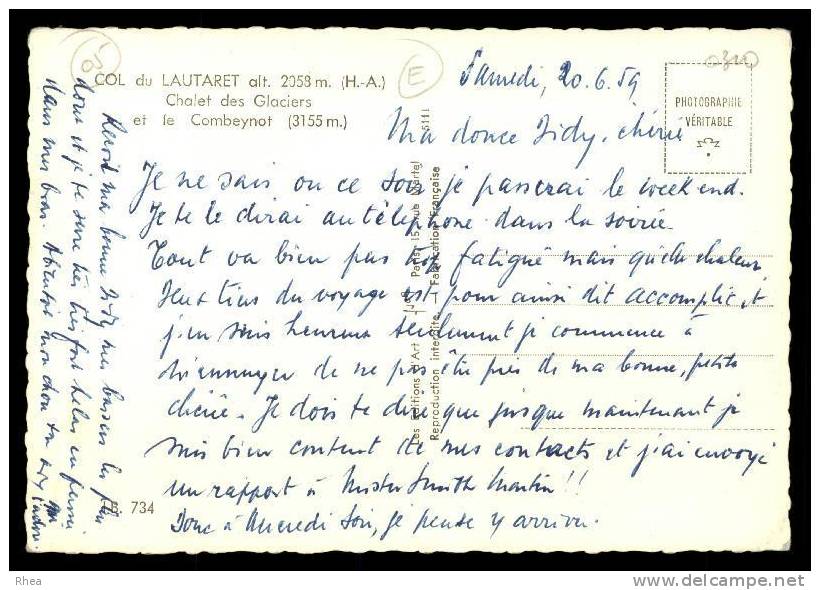 COL du LAUTARET alt. 2058 m. (H.-A.)
Chalet des Glaciers
et le Combeynot (3155 m.)
E
Samedi, 20.6.59
PHOTOGRAPHIE
VÉRITABLE
Ma douce Zidy, chérie
Je ne sais ou ce soir je passerai le week end.
Je te le dirai au téléphone dans la soirée.
Tout va bien pas trop fatigué mais quelle chaleur.
Deux tiers du voyage est pour ainsi dit accomplit et
j'en suis heureux seulement je commence à
m'ennuyer de ne pas être près de ma bonne, petite
chérie. Je dois te dire que jusque maintenant je
suis bien content de mes contacts et j'ai envoyé
un rapport à Mister Smith Martin !!
Donc à Mercredi soir, je pense y arriver.
Reçoit ma bonne Zidy mes baisers les plus
doux et je te serre très très fort hélas en pensée
dans mes bras. Abientot mon chou ton
qui t'adore.
B. 734
Les Editions d'Art Paris 15, rue Martel
Reproduction interdite - Fabrication Française
5111
Rhea
delcampe.net